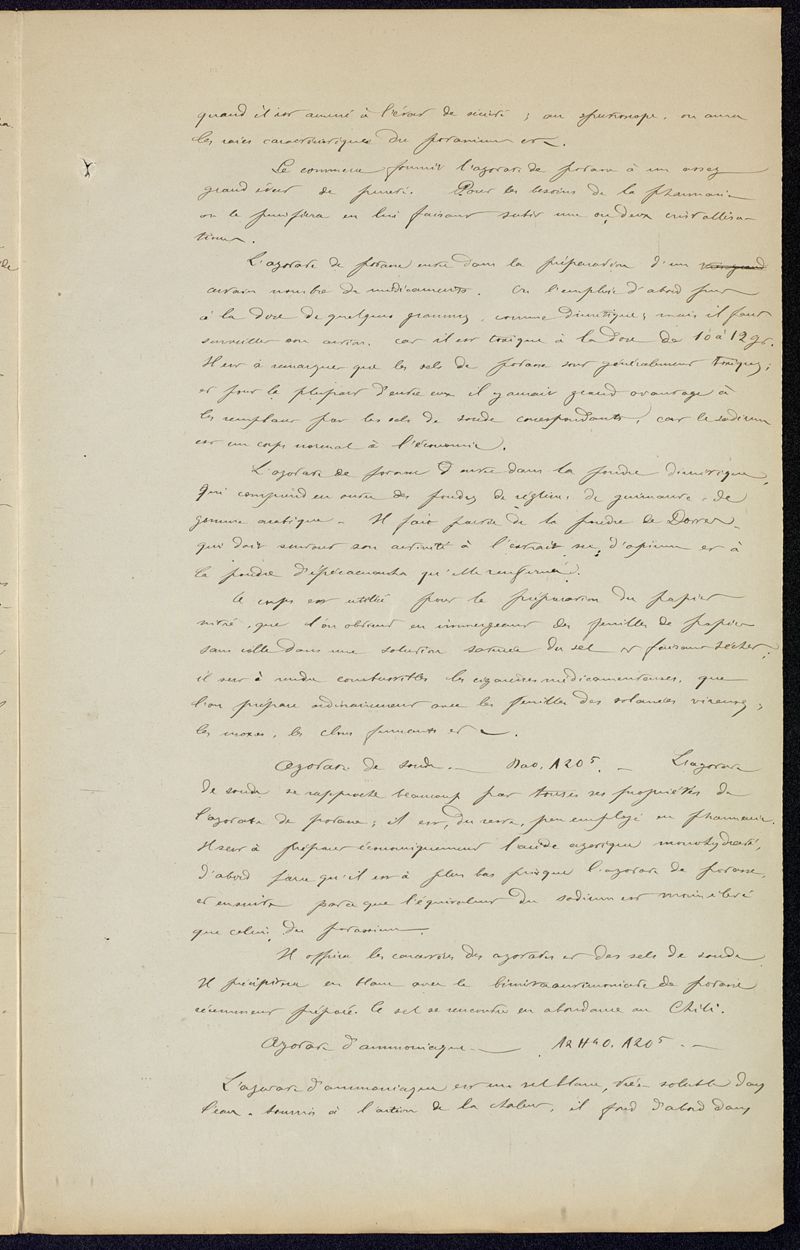 quand il est amené à l'état de siccité ; au spectroscope, on aura
les raies caractéristiques du potassium etc.
Le commerce fournit l'azotate de potasse à un assez
grand état de pureté. Pour les besoins de la pharmacie
on le purifiera en lui faisant subir une ou deux cristallisa-
tions.
L'azotate de potasse entre dans la préparation d'un
certain nombre de médicaments. On l'emploie d'abord
à la dose de quelques grammes, comme diurétique, mais il faut
surveiller son action, car il est toxique à la dose de 10 à 12 gr.
Il est à remarquer que les sels de potasse sont généralement toxiques,
et pour la plupart d'entre eux il y aurait grand avantage à
les remplacer par les sels de soude correspondants, car le sodium
est un corps normal à l'économie.
L'azotate de potasse entre dans la poudre diurétique,
qui comprend en outre des poudres de réglisse, de guimauve, de
gomme arabique. Il fait partie de la poudre de Dower,
qui doit surtout son activité à l'extrait sec d'opium et à
la poudre d'ipécacuanha qu'elle renferme.
Ce corps est utilisé pour la préparation du papier
nitré, que l'on obtient en immergeant des feuilles de papier
sans colle dans une solution saturée du sel et faisant sécher,
il sert à rendre combustibles les cigarettes médicamenteuses, que
l'on prépare ordinairement avec les feuilles des solanées vireuses,
les moxas, les clous fumants etc.
Azotate de soude. — NaO, AzO5. — L'azotate
de soude se rapproche beaucoup par toutes ses propriétés de
l'azotate de potasse ; il est, du reste, peu employé en pharmacie.
Il sert à préparer économiquement l'acide azotique monohydraté,
d'abord parce qu'il est à plus bas prix que l'azotate de potasse,
et ensuite parce que l'équivalent du sodium est moins élevé
que celui du potassium.
Il offrira les caractères des azotates et des sels de soude
Il précipitera en blanc avec le de potasse
récemment préparé. Ce sel se rencontre en abondance au Chili.
Azotate d'ammoniaque — AzH4O, AzO5. —
L'azotate d'ammoniaque est un sel blanc, très soluble dans
l'eau. Soumis à l'action de la chaleur, il fond d'abord dans